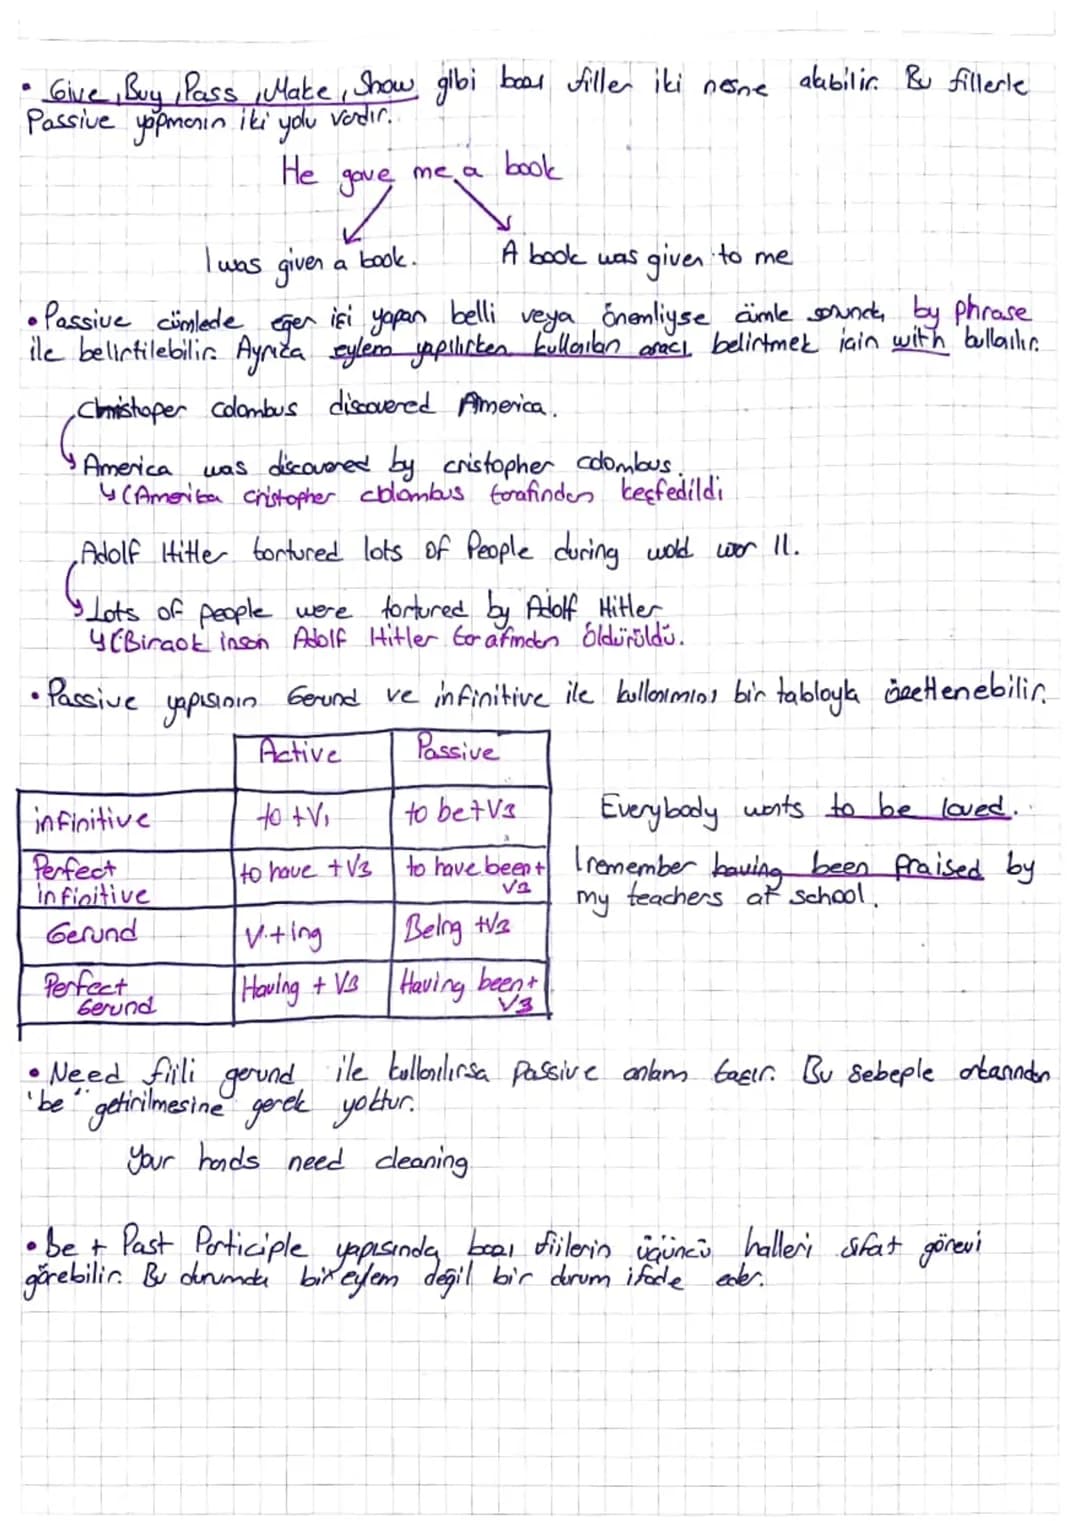 • Give, Buy, Pass, Make, Show gibi bazı fiiller iki nesne alabilir. Bu fiillerle
Passive yapmanın iki yolu vardır.
He gave me a book
I was given a book. A book was given to me
• Passive cümlede eğer işi yapan belli veya önemliyse cümle sonunda by phrase
ile belirtilebilir. Ayrıca eylem yapılırken kullanılan aracı belirtmek için with kullanılır.
Christoper colombus discovered America.
America was discovered by cristopher colombus.
(Amerika cristopher colombus tarafından keşfedildi
Adolf Hitler tortured lots of People during wold war II.
Lots of people were tortured by Adolf Hitler
(Birçok insan Adolf Hitler tarafından öldürüldü.
• Passive yapısının Gerund ve infinitive ile kullanımını bir tabloyla özetlenebilir.
Active Passive
infinitive to + V1 to be + V3
Perfect infinitive to have + V3 to have been + V3
Gerund V + ing Being + V3
Perfect Gerund Having + V3 Having been + V3
Everybody wants to be loved.
I remember having been praised by
my teachers at school.
• Need fiili gerund ile kullanılırsa passive anlam taşır. Bu sebeple ortamdan
"be" getirilmesine gerek yoktur.
Your hands need cleaning
• be + Past Participle yapısında bazı fiilerin üçüncü halleri sıfat görevi
görebilir. Bu durumda bir eylem değil bir durum ifade eder.